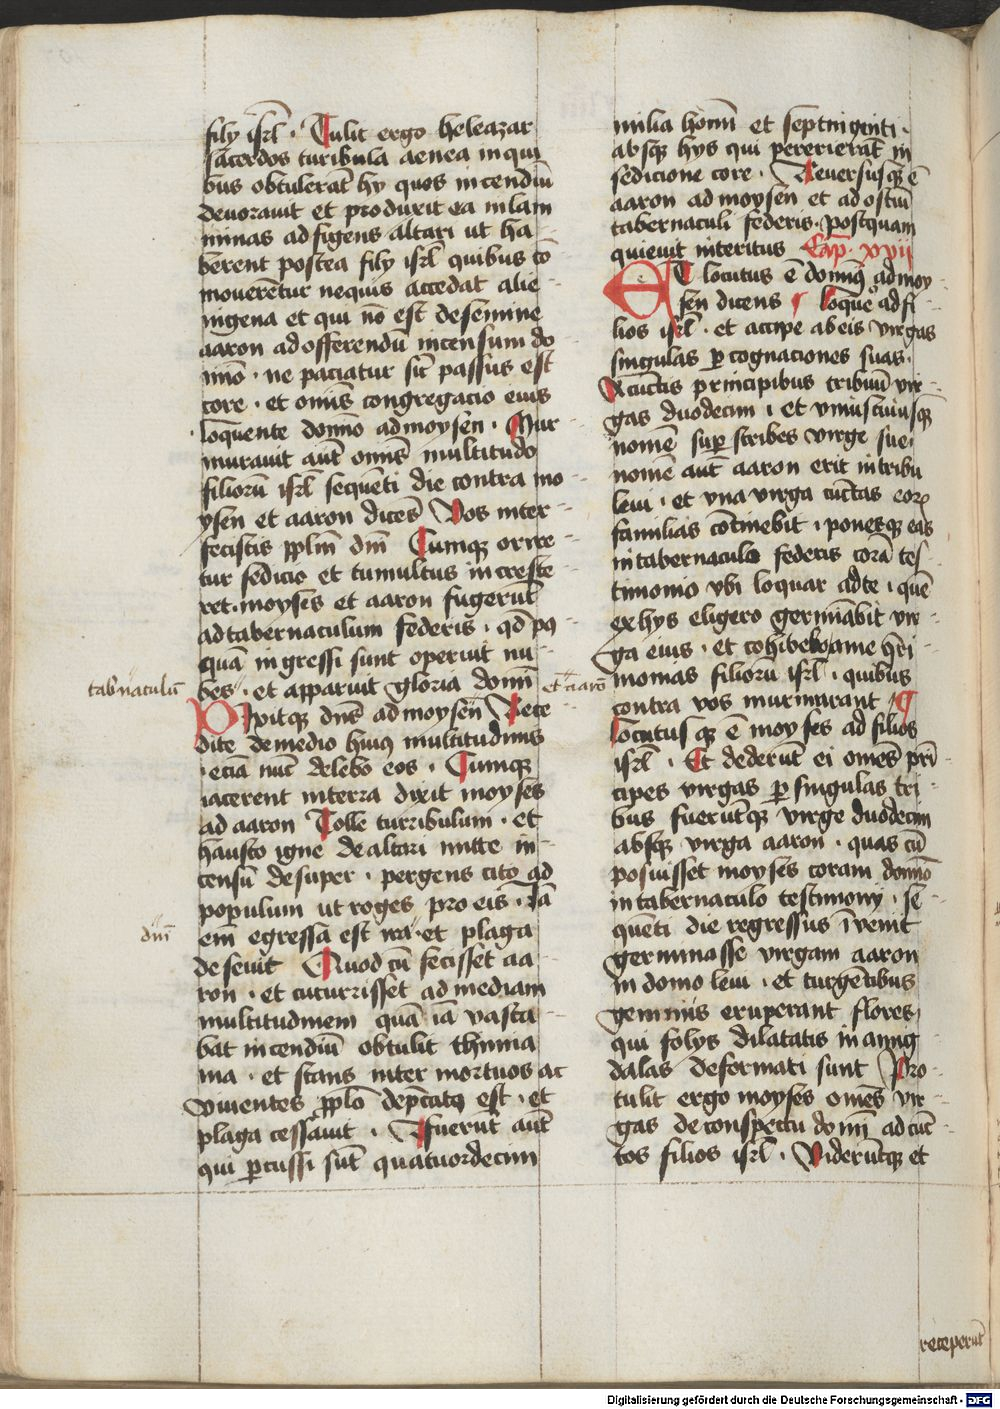 fily isrl̄ · Tulit ergo heleazar
sacerdos turibula aenea in qui
bus obtulerāt hy quos incendiū
devoravit et produxit ea in lam
minas adfigens altari ut ha
berent postea fily isrl̄ quibus cō
moverentur nequis accedat alie
nigena et qui nō est desemine
aaron ad offerendū incensum do
mīo · ne paciatur sic̄ passus est
core · et omīs congregacio eius
loquente domīo ad moysen · Mur
muravit aūt omīs multitudo
filiorū isrl̄ sequēti die contra mo
ysen et aaron dicēs Vos inter
fecistis pplm̄ dm̄ Cumqꝫ orire
tur sedicio et tumultus incresce
ret · moyses et aaron fugerūt
ad tabernaculum federis · qd̄ pꝰ
quā ingressi sunt operuit nu
tabn̄aculū
bes · et apparuit gloria domī
et aarō
Dixitqꝫ dn̄s ad moysen Rece
dite demedio huiꝰ multitudinis
· eciā nūc delebo eos · Cumqꝫ
iacerent in terra dixit moyses
ad aaron Tolle turribulum · et
hausto igne dealtari mitte in
censū desuper · pergens cito ad
populum ut roges pro eis · Iā
dm̄
em̄ egressa est ira · et plaga
desevit Quod cū fecisset aa
ron · et cucurrisset ad mediam
multitudinem quā iā vasta
bat incendiū obtulit thimia
ma · et stans inter mortuos ac
viventes pplō dep̄catꝰ est · et
plaga cessavit · Ffuerūt aūt
qui ꝑcussi sūt quatuordecim
milia homī et septingenti ·
absqꝫ hys qui pererierāt in
sedicione core · Reversusqꝫ ē
aaron ad moysen et ad ostiū
tabernaculi federis · postquam
quievit interitus Cap̄ xvii
Et locutus ē domīꝰ ad moy
sen dicens loquē ad fi
lios isrl̄ · et accipe ab eis virgas
singulas ꝑ cognaciones suas ·
A cunctis principibus tribuū vir
gas duodecim · et vniuscuiusqꝫ
nomē suꝑ scribes virge sue ·
nomē aūt aaron erit in tribu
levi · et vna virga cunctas eorꝫ
familias cōtinebit · ponesqꝫ eas
in tabernaculo federis corā tes
timonio vbi loquar ad te · quē
ex hys eligero germīabit vir
ga eius · et cohibebo a me q̄ri
monias filiorū isrl̄ · quibus
contra vos murmurant
Locutusqꝫ ē moyses ad filios
isrl̄ · Et dederūt ei omēs prī
cipes virgas ꝑ singulas tri
bus fuerūtqꝫ virge duodecim
absqꝫ virga aaron · quas cū
posuisset moyses coram domīo
in tabernaculo testimony · se
quēti die regressus īvenit
germinasse virgam aaron
in domo levi · et turgētibus
gemmis eruperant flores
qui folys dilatatis in amig
dalas deformati sunt Pro
tulit ergo moyses omēs vir
gas de conspectu domī ad cūc
tos filios isrl̄ · Viderūtqꝫ et
receperūt
Digitalisierung gefördert durch die Deutsche Forschungsgemeinschaft - DFG